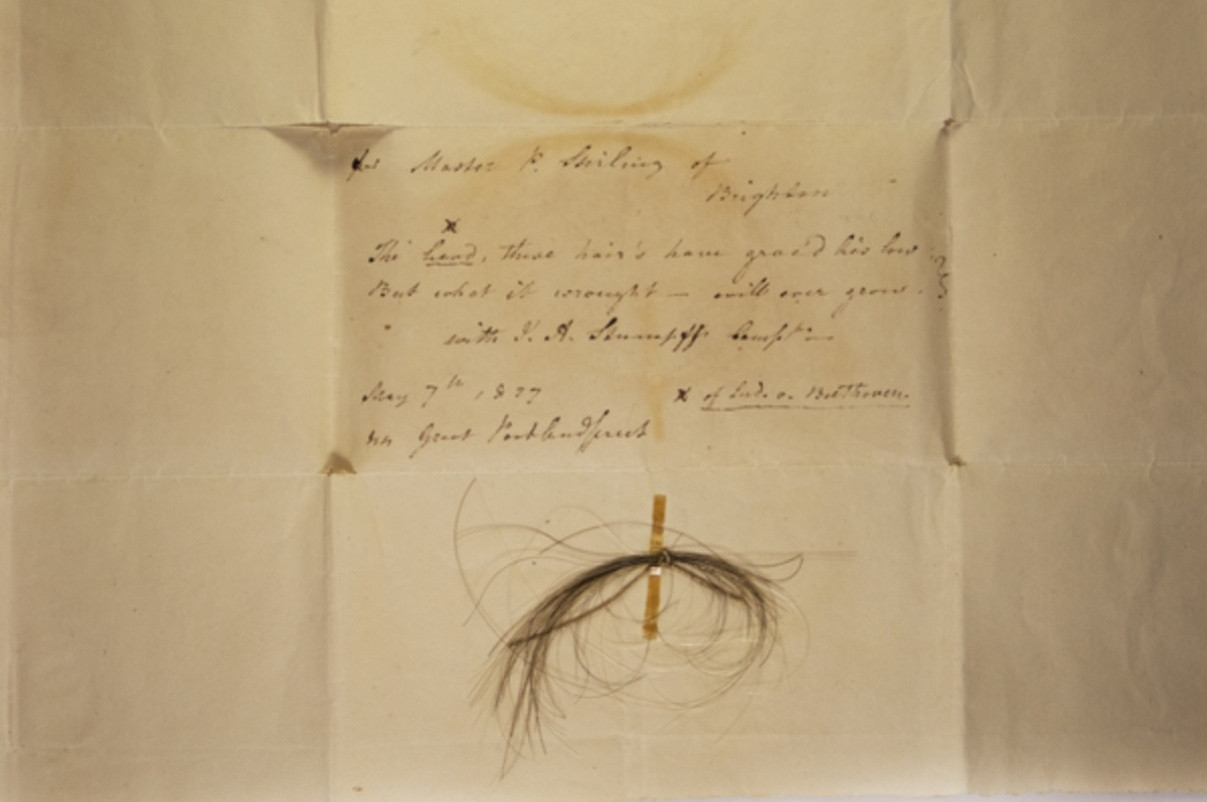 for Master P. Stirling of
Brighton
x
The head, these hair's have grac'd lies low
But what it wrought — will ever grow.
with J. A. Stumpff's Compts
May 7th 1827
x of Lud. v. Beethoven.
Great Portland street